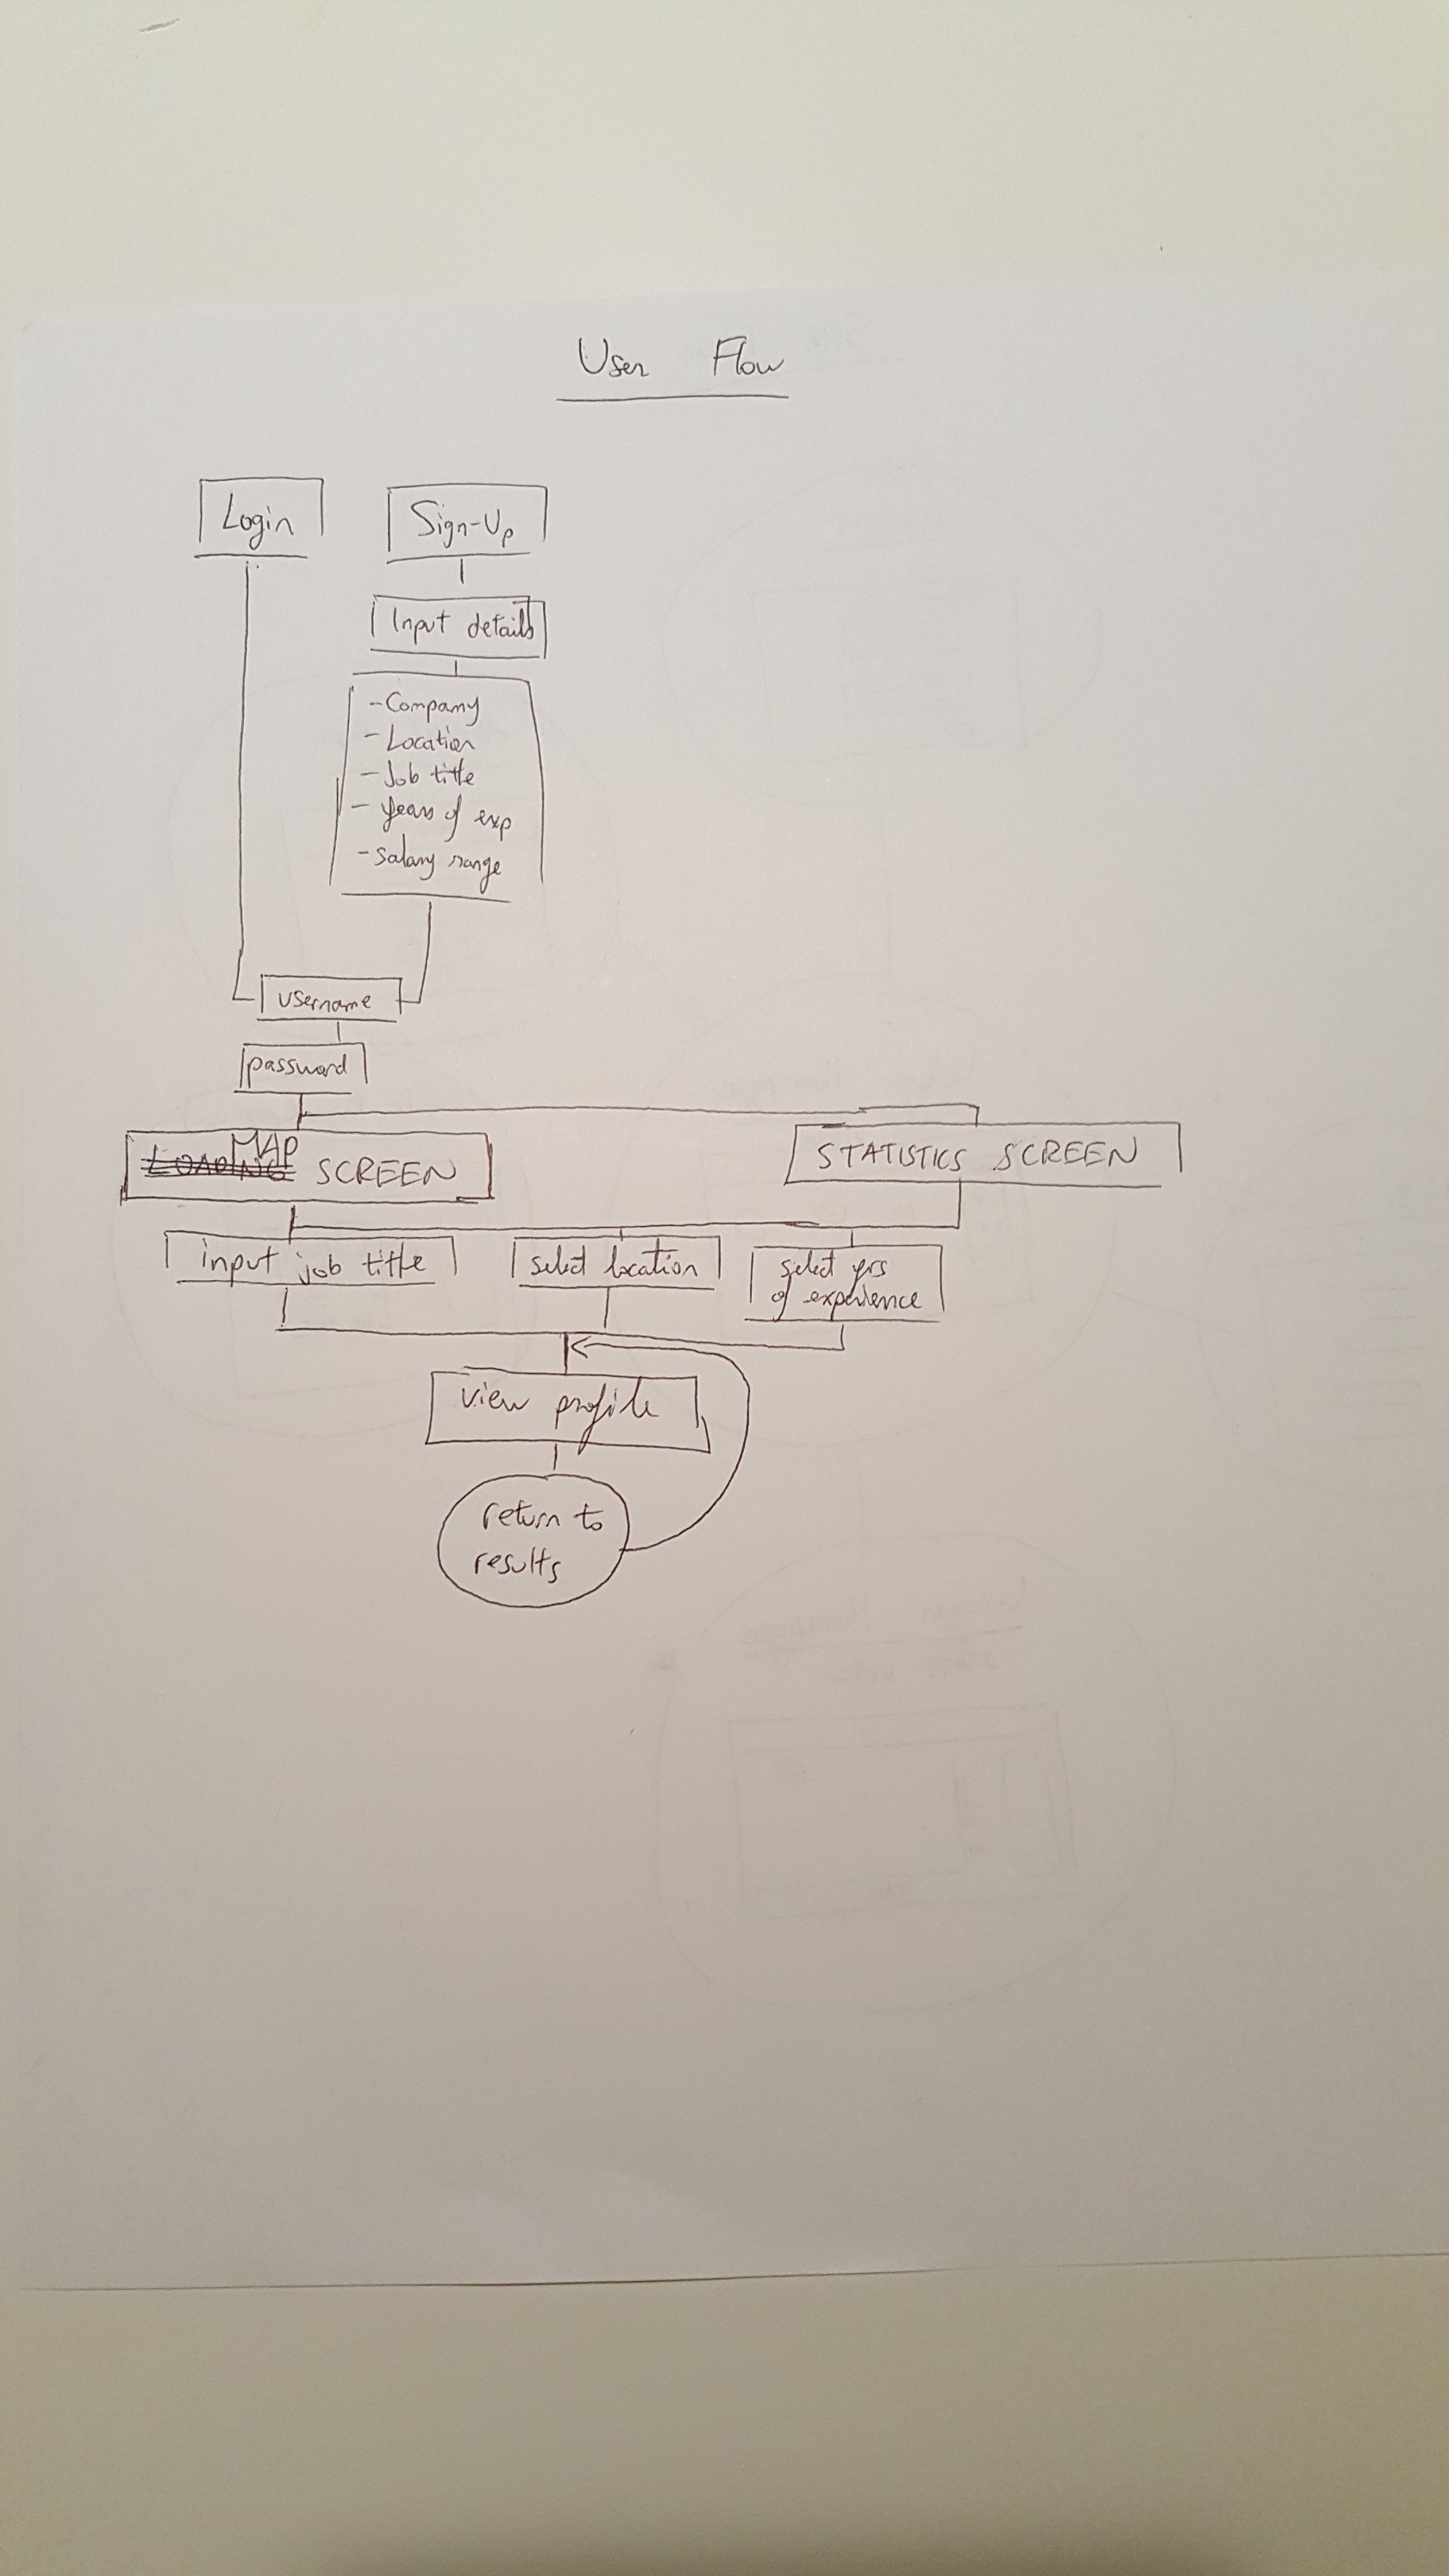 User Flow
Login
Sign-Up
Input details
- Company
- Location
- Job title
- years of exp
- salary range
username
password
MAP
LOADING SCREEN
STATISTICS SCREEN
input job title
select location
select yrs
of experience
view profile
return to
results